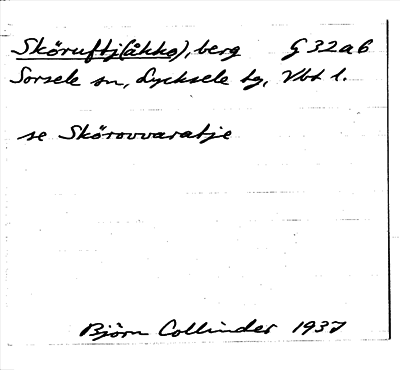 Sköruftj(åkko), berg G 32 a b
Sorsele sn, Lycksele lg, Vbt l.
se Skörovvaratje
Björn Collinder 1937